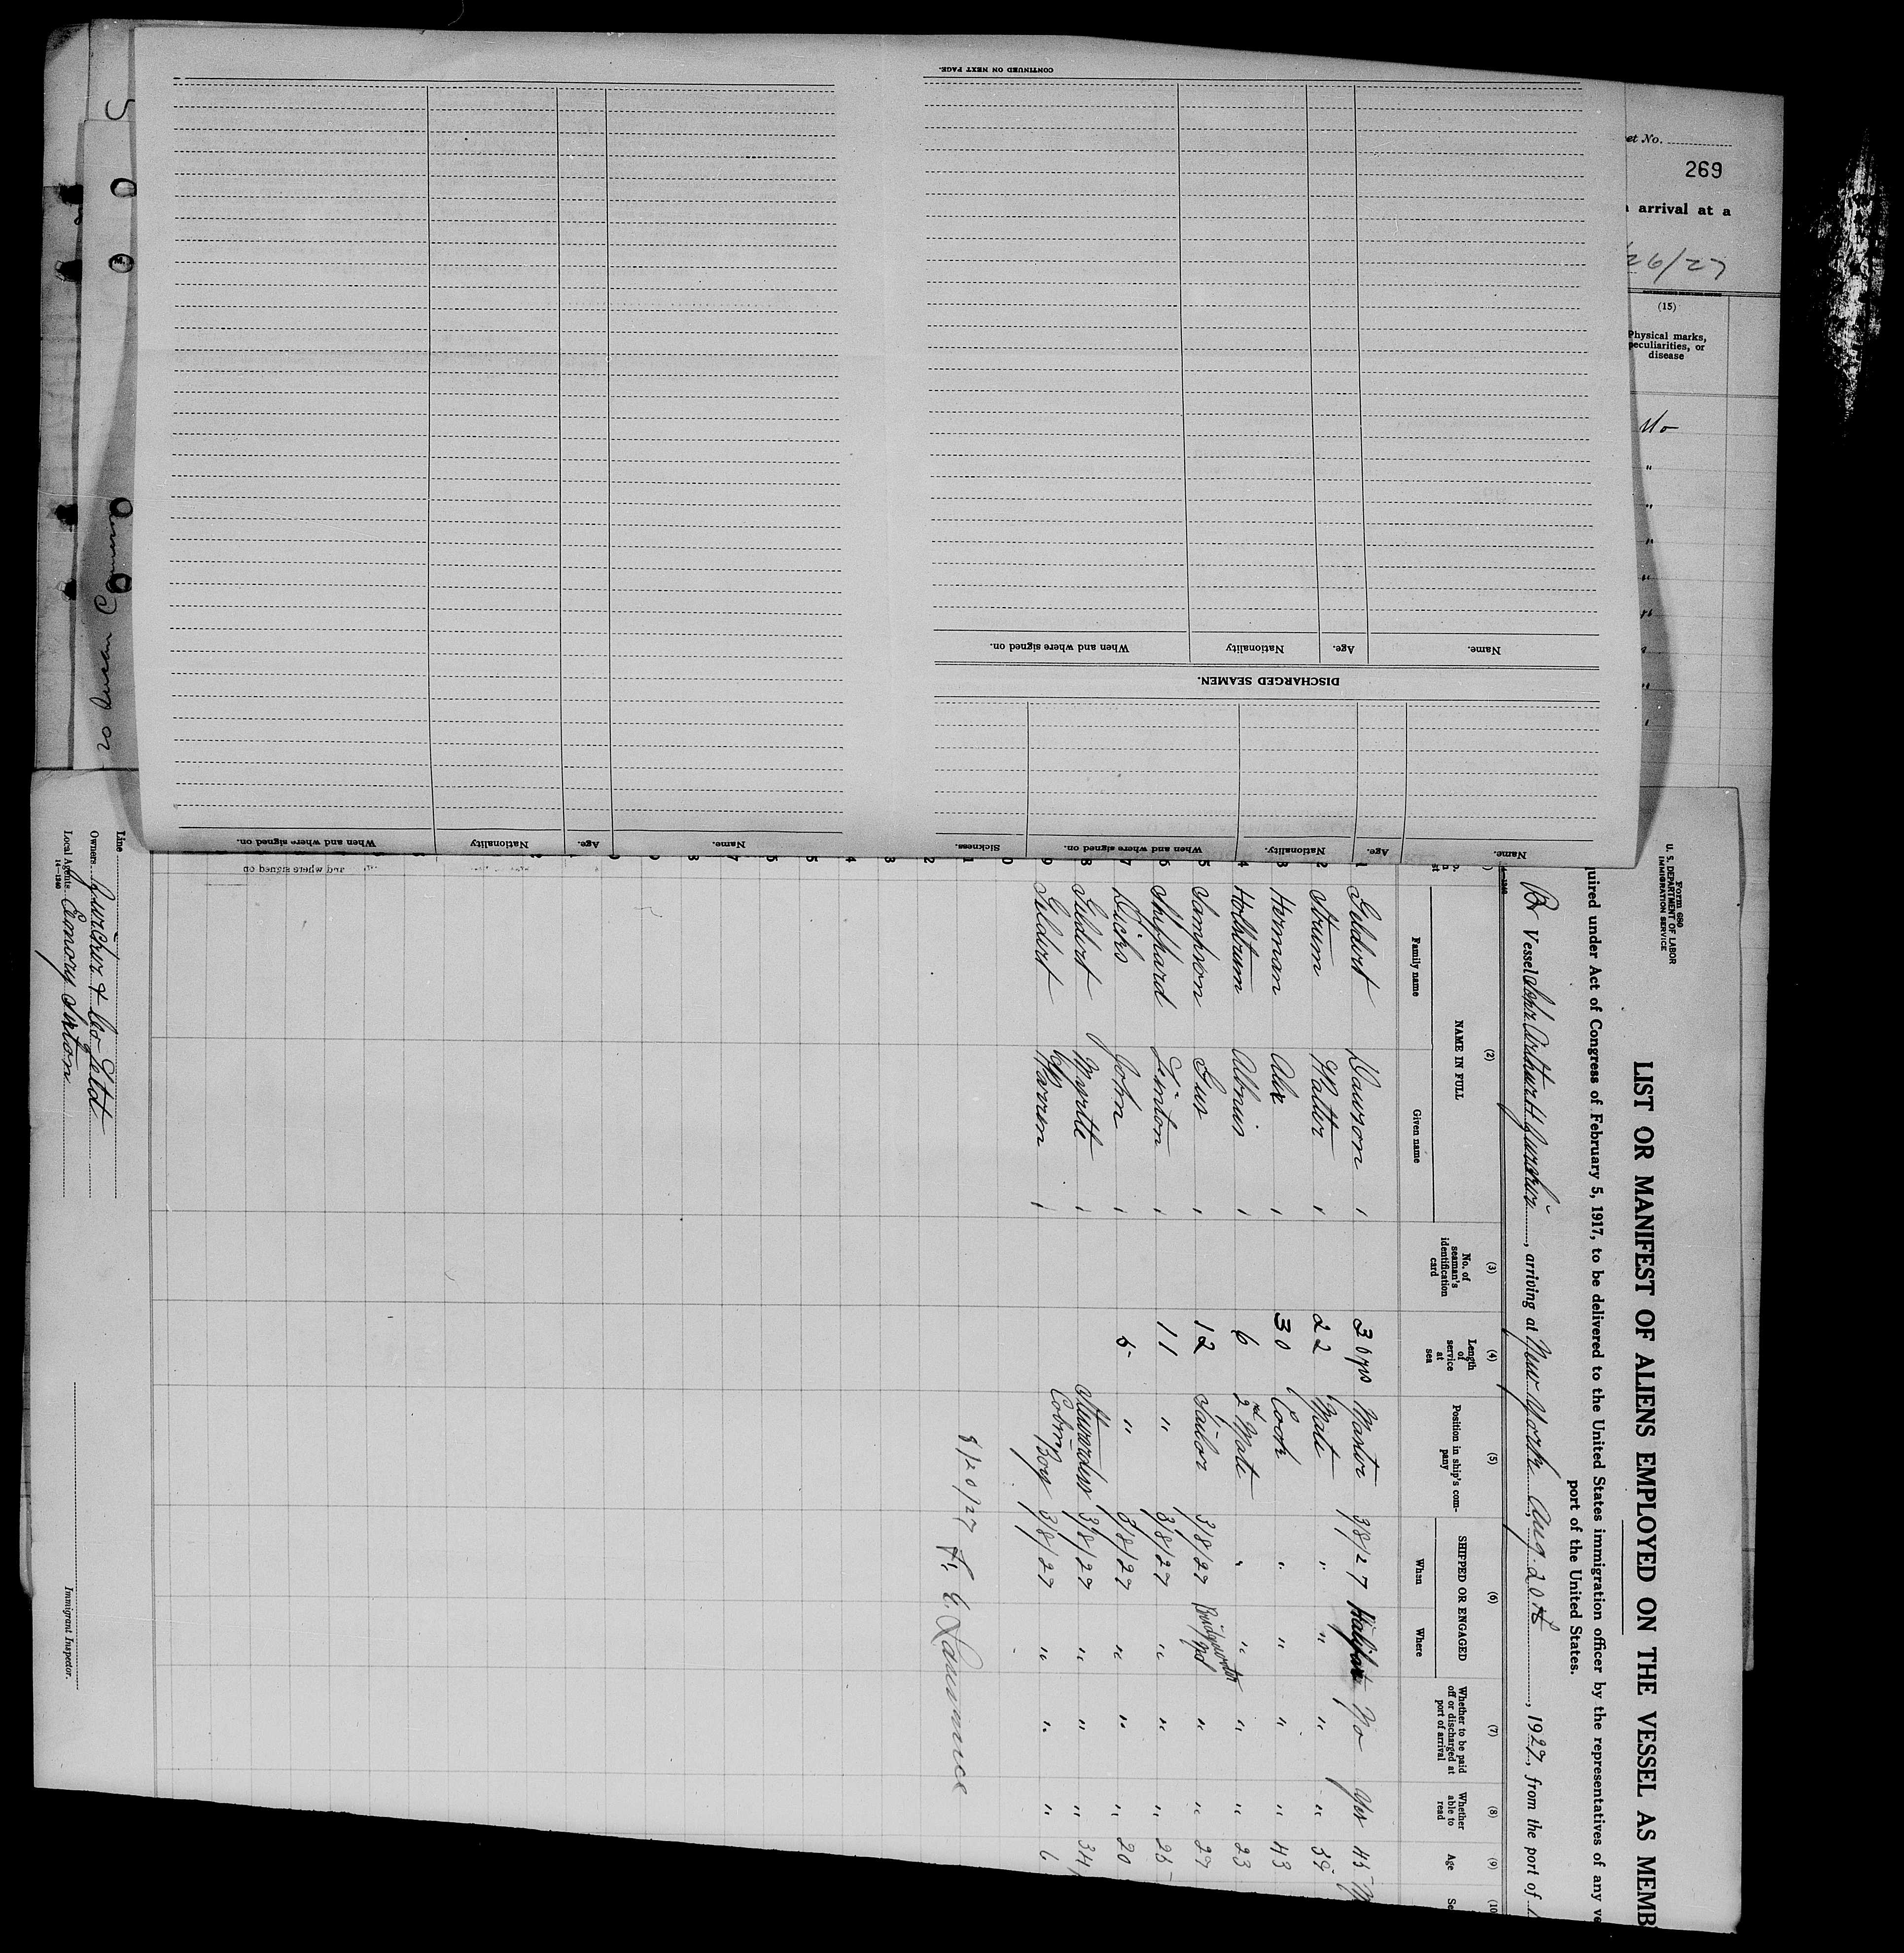 269
arrival at a
26/27
(15)
Physical marks,
peculiarities, or
disease
No
"
"
"
"
"
"
"
CONTINUED ON NEXT PAGE.
Name.
Age.
Nationality
When and where signed on.
DISCHARGED SEAMEN.
Name.
Age.
Nationality.
When and where signed on.
Sickness.
Name.
Age.
Nationality
When and where signed on.
and where signed on
Form 680
U. S. DEPARTMENT OF LABOR
IMMIGRATION SERVICE
LIST OR MANIFEST OF ALIENS EMPLOYED ON THE VESSEL AS MEMB
uired under Act of Congress of February 5, 1917, to be delivered to the United States immigration officer by the representatives of any ve
port of the United States.
Br Vessel Schr Arthur H Zurcher, arriving at New York Aug. 20th, 1927, from the port of
(2) (3) (4) (5) (6) (7) (8) (9) (10
NAME IN FULL
Family name Given name
No. of
seaman's
identification
card
Length
of
service
at
sea
Position in ship's com-
pany
SHIPPED OR ENGAGED
When Where
Whether to be paid
off or discharged at
port of arrival
Whether
able to
read
Age
Se
1 Geldert Dawson 1 yrs Master 3/8/27 Halifax No Yes 45 M
2 Strum Walter 1 22 Mate " " " " 39
3 Herman Alex 1 30 Cook " " " " 43
4 Holbtum 1 6 2nd Mate " " " " 23
5 Sampson Gus 1 12 Sailor 3/8/27 " " 27
6 Shephard Linton 1 11 " 3/8/27 " " " 25
7 Dicks John 1 5 " 3/8/27 " " " 20
8 Geldert Myrtle 1 Stewardess 3/8/27 " " " 34
9 Geldert Warren 1 Cabin Boy 3/8/27 " " " 6
8/20/27 F. C. Lawrence
Line
Owners Zurcher & Co Ltd
Local Agents
14—1240
Immigrant Inspector.